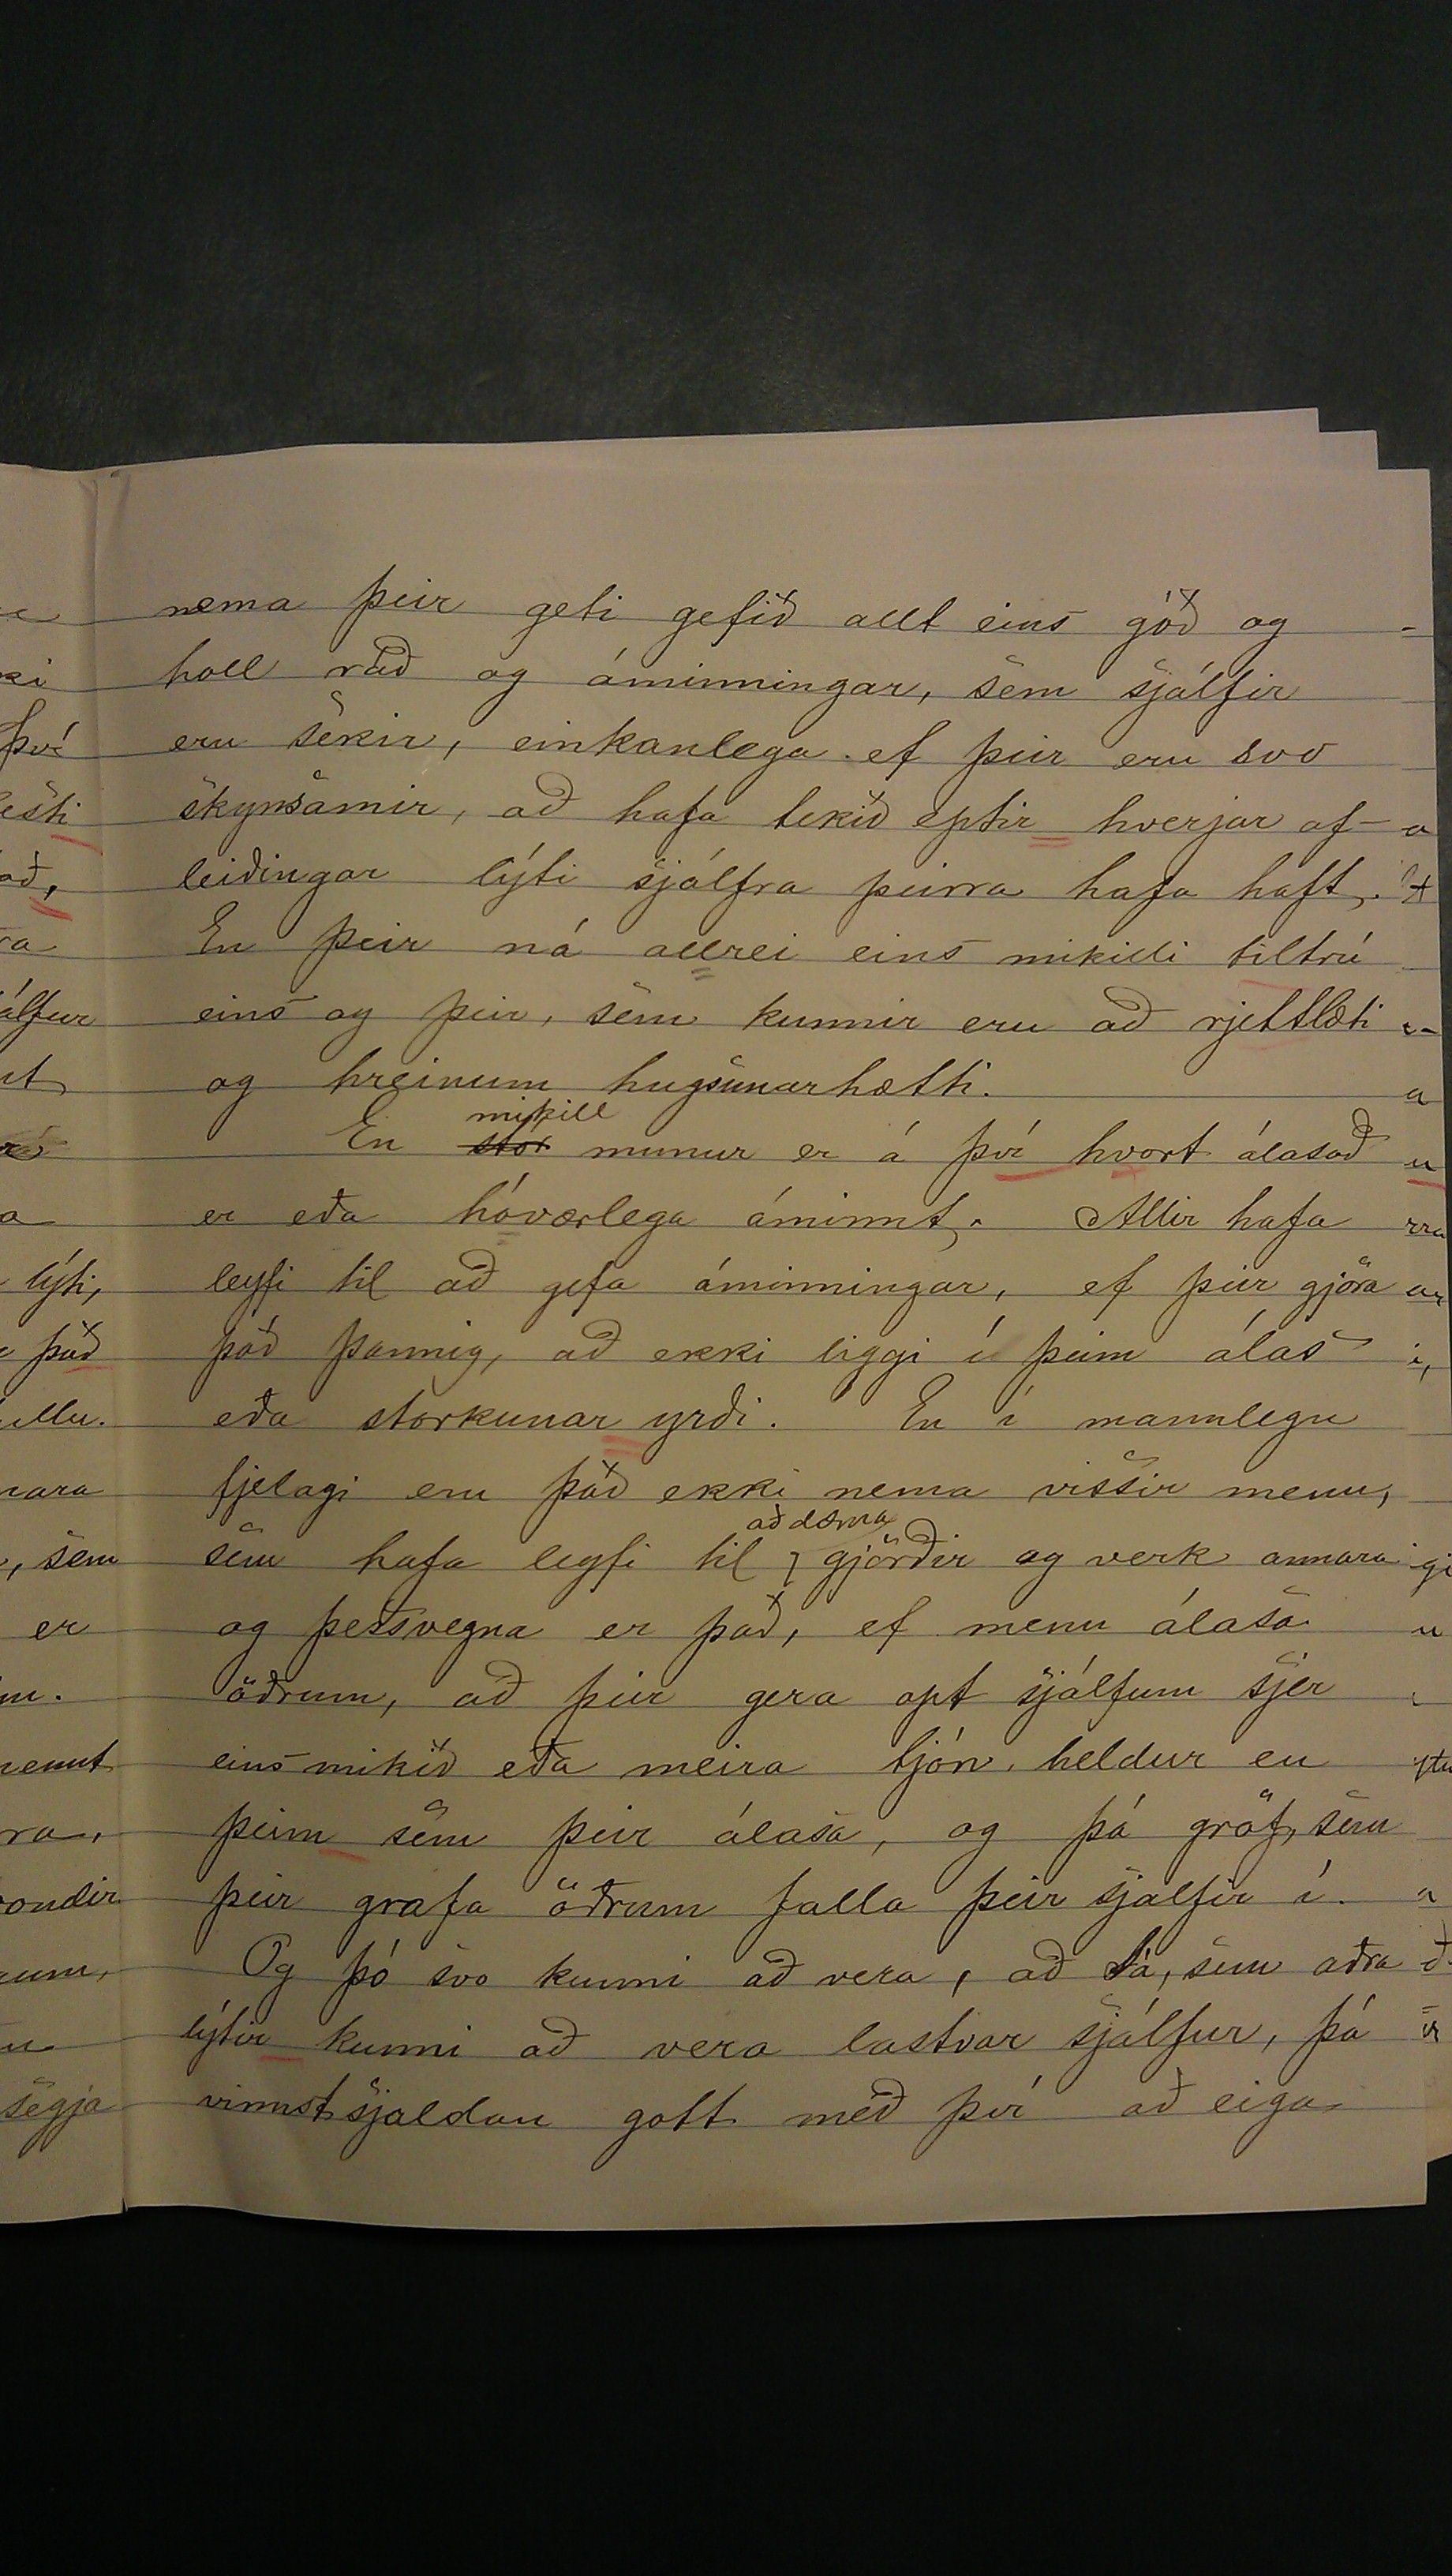 nema þeir geti gefið allt eins góð og
holl ráð og áminningar, sem sjálfir
eru sekir, einkanlega ef þeir eru svo
skynsamir, að hafa tekið eptir hverjar af-
leiðingar lýti sjálfra þeirra hafa haft.
En þeir ná allrei eins mikilli tiltrú
eins og þeir, sem kunnir eru að rjettlæti
og hreinum hugsunarhætti.
mikill
En stór munur er á því hvort álasað
er eða hóværlega áminnt. Allir hafa
leyfi til að gefa áminningar, ef þeir gjöra
það þannig, að ekki liggi í þeim álas
eða storkunar yrði. En í mannlegu
fjelagi eru það ekki nema vissir menn,
að dæma
sem hafa leyfi til gjörðir og verk annara
og þessvegna er það, ef menn álasa
öðrum, að þeir gera opt sjálfum sjer
eins mikið eða meira tjón, heldur en
þeim sem þeir álasa, og þá gröf, sem
þeir grafa öðrum falla þeir sjalfir í.
Og þó svo kunni að vera, að sá, sem aðra
lýtir kunni að vera lastvar sjálfur, þá
vinnst sjaldan gott með því að eiga